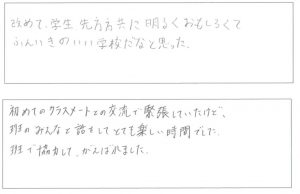 改めて、学生 先方方共に 明るくおもしろくて
ふんいきのいい学校だなと思った。
初めてのクラスメートとの交流で緊張していたけど、
班のみんなと話をしてとても楽しい時間でした。
班で協力して、がんばれました。